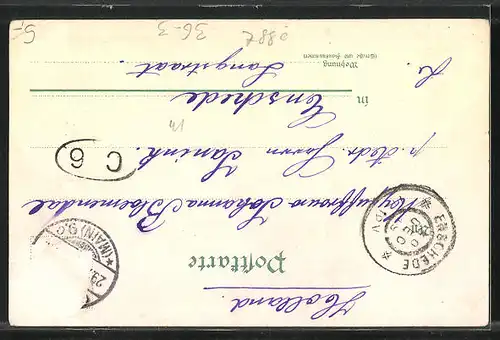 Holland.
Postkarte
Mejuffrouw Johanna Bloemendal
p. Adr. Herrn Janink.
in Enschede
Langstraat.
Wohnung
(Straße und Hausnummer)
C 6
ENSCHEDE
(MAIN)
29.
36-3